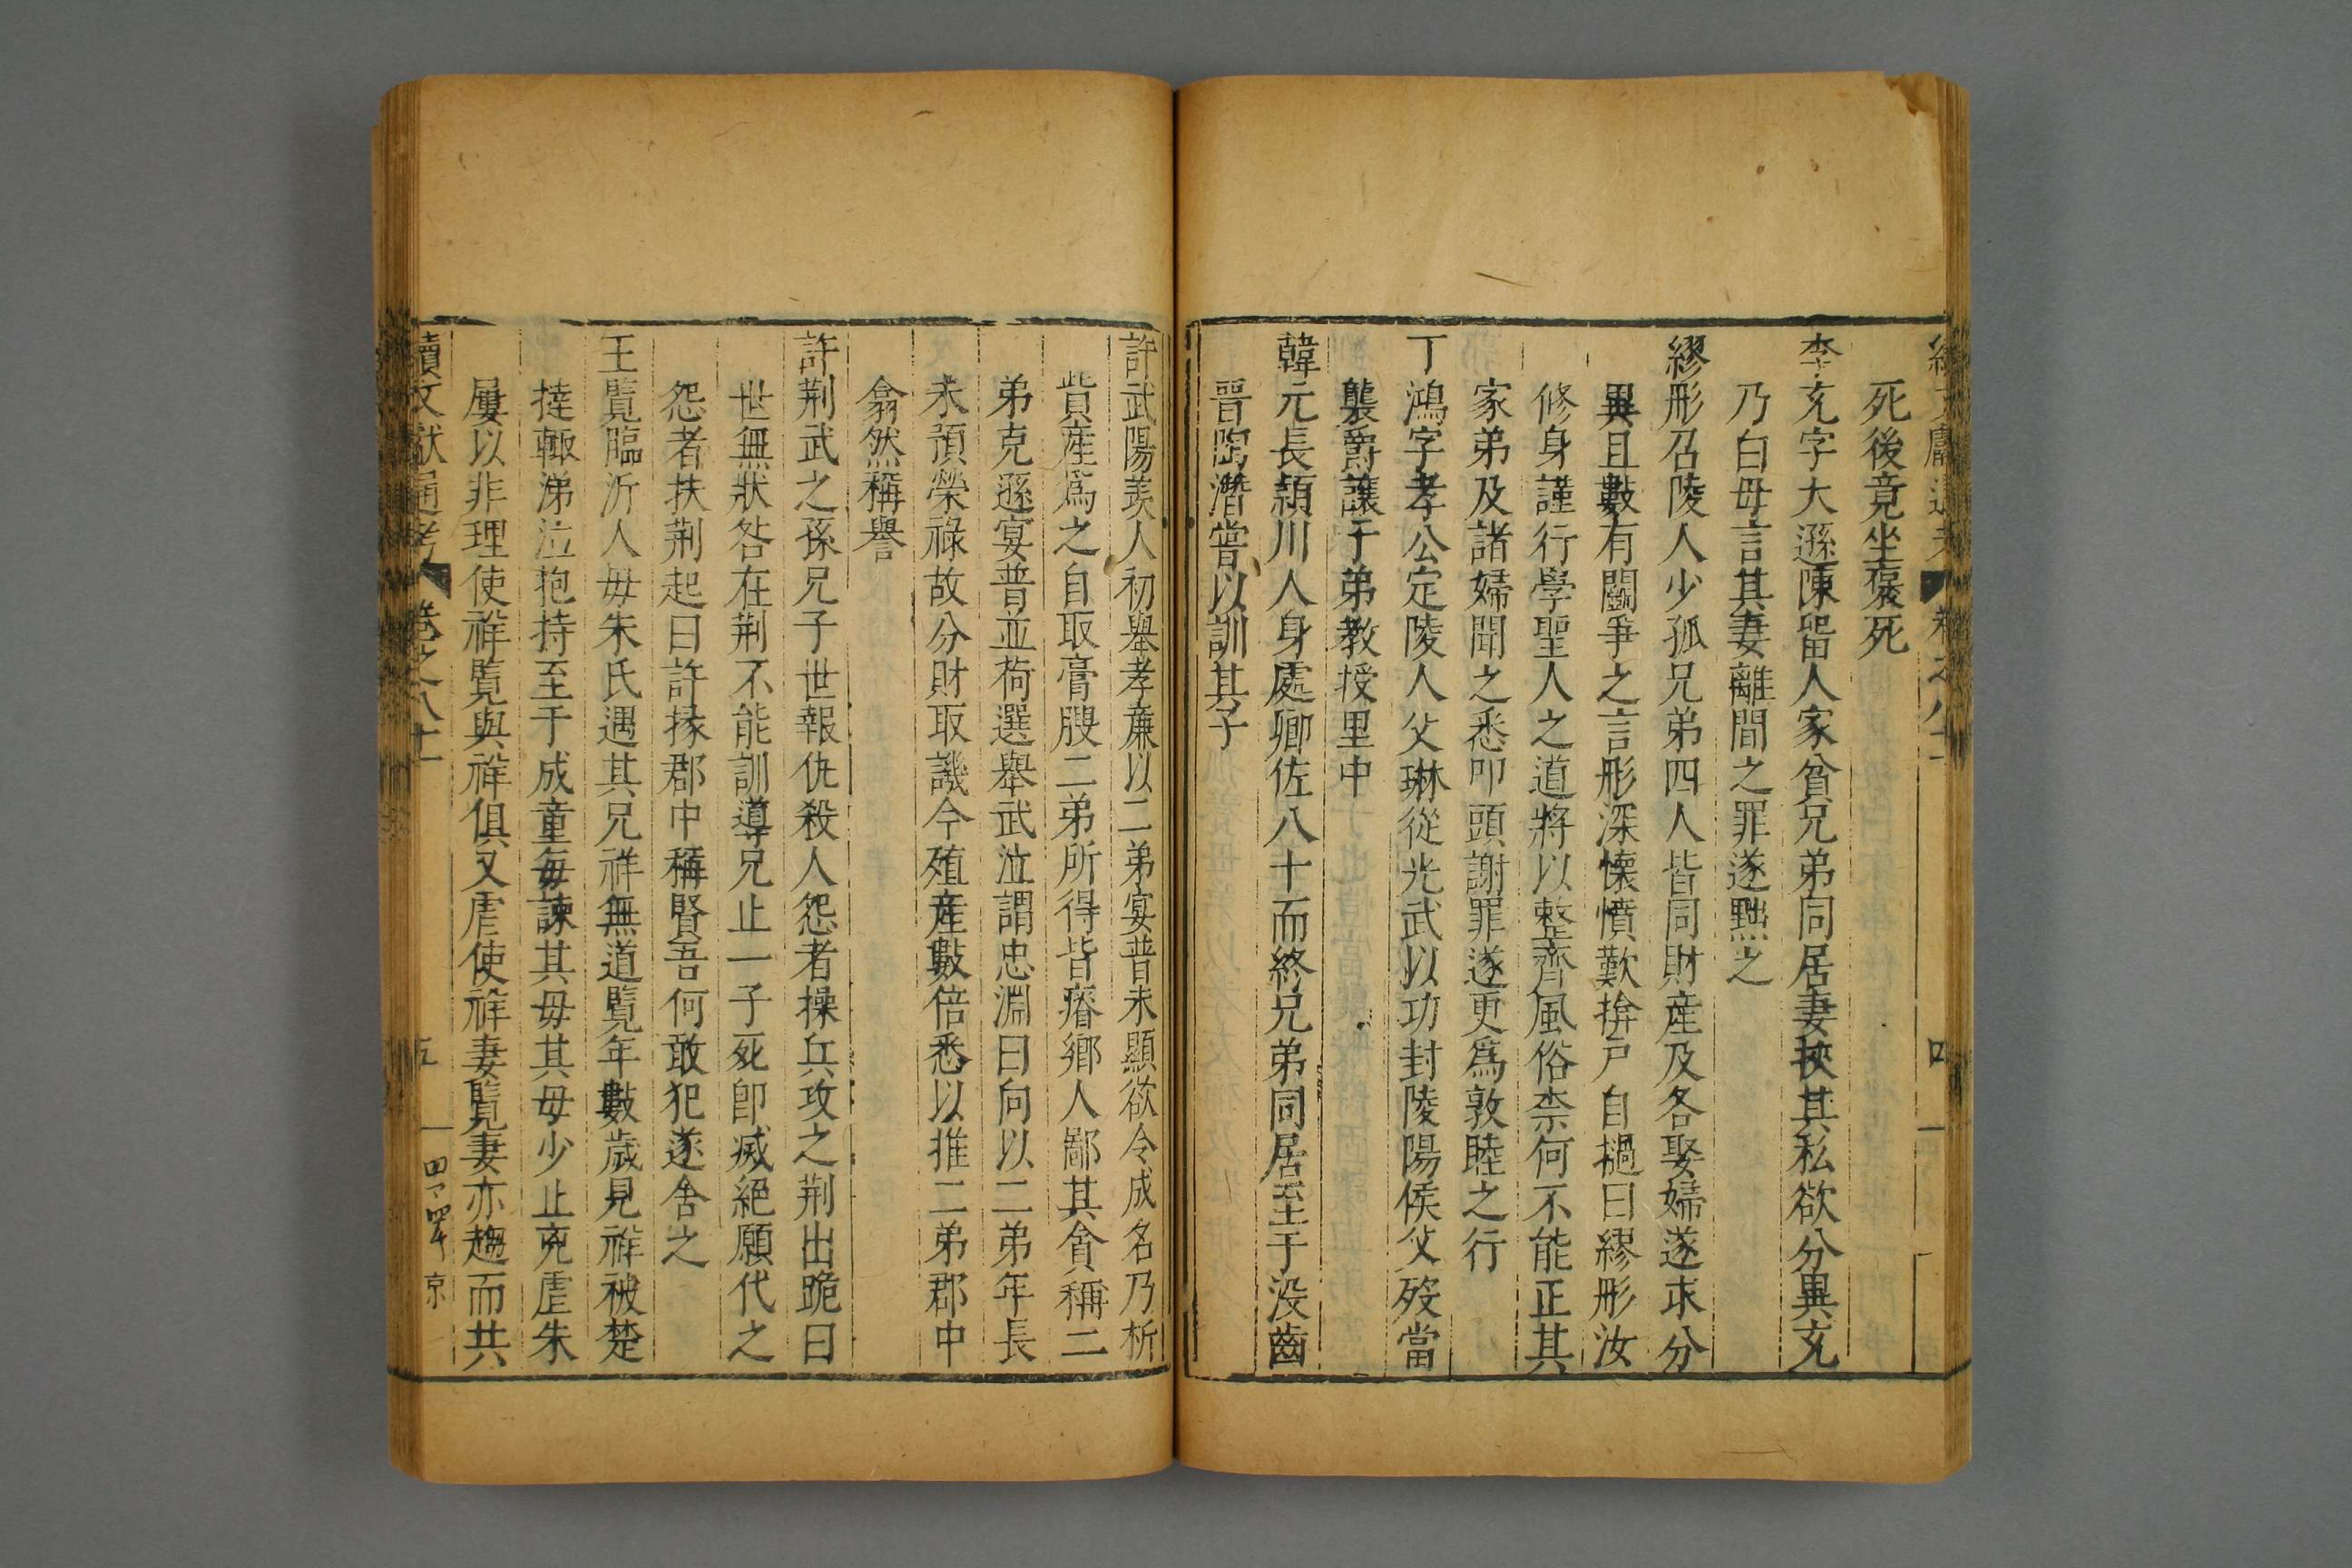 死後竟坐褒死
李充字大遜陳留人家貧兄弟同居妻挾其私欲分異充
乃白母言其妻離間之罪遂黜之
繆肜召陵人少孤兄弟四人皆同財產及各娶婦遂求分
異且數有鬬爭之言肜深懐憤歎揜戸自撾曰繆肜汝
修身謹行學聖人之道將以整齊風俗柰何不能正其
家弟及諸婦聞之悉叩頭謝罪遂更爲敦睦之行
丁鴻字孝公定陵人父琳從光武以功封陵陽侯父歿當
襲爵讓于弟教授里中
韓元長潁川人身處卿佐八十而終兄弟同居至于没齒
晉陶潛嘗以訓其子
許武陽羡人初舉孝亷以二弟宴普未顯欲令成名乃析
貲産爲之自取膏腴二弟所得皆瘠鄉人鄙其貪稱二
弟克遜宴普並荷選舉武泣謂忠淵曰向以二弟年長
未湏榮祿故分財取譏今殖産數倍悉以推二弟郡中
翕然稱譽
許荆武之孫兄子世報仇殺人怨者操兵攻之荆出跪曰
世無狀咎在荆不能訓導兄止一子死卽㓕絕願代之
怨者扶荆起曰許掾郡中稱賢吾何敢犯遂舍之
王覽臨沂人母朱氏遇其兄祥無道覽年數歲見祥被楚
撻輙涕泣抱持至于成童每諫其母其母少止㐬虐朱
屢以非理使祥覽與祥俱又虐使祥妻覽妻亦趨而共
續文獻通考 卷之八十 五